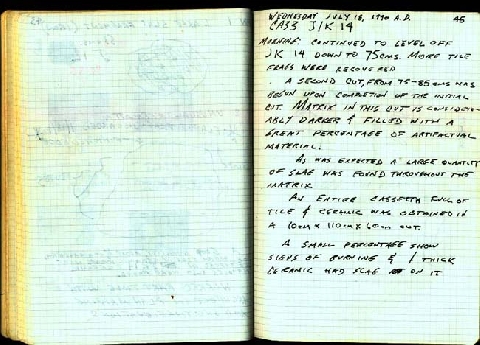 WEDNESDAY JULY 18, 1990 A.D. 45
CASS J/K 14
MORNING: CONTINUED TO LEVEL OFF
J/K 14 DOWN TO 75CMS. MORE TILE
FRAGS WERE RECOVERED
A SECOND CUT, FROM 75-85CMS WAS
BEGUN UPON COMPLETION OF THE INITIAL
CUT. MATRIX IN THIS CUT IS CONSIDER-
ABLY DARKER & FILLED WITH A
GREAT PERCENTAGE OF ARTIFACTUAL
MATERIAL.
AS WAS EXPECTED A LARGE QUANTITY
OF SLAG WAS FOUND THROUGHOUT THE
MATRIX
AN ENTIRE CASSETTA FULL OF
TILE & CERAMIC WAS OBTAINED IN
A CUT.
A SMALL PERCENTAGE SHOW
SIGNS OF BURNING & 1 THICK
CERAMIC HAD SLAG ON IT